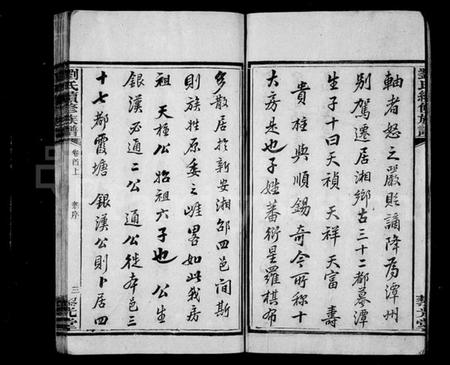 劉氏續修族譜
軸者怒之嚴貶謫降為潭州
別駕遷居湘鄉古三十二都蓼潭
生子十曰天禎 天祥 天富 壽
貴 柱與順錫奇今所称十
大房是也子姓蕃衍星羅棋布
多散居於新安湘邵四邑間斯
則族姓原委之崖畧如此我房
祖 天檀公 始祖六子也 公生
銀漢 必通二公 通公徙本邑三
十七都霞塘 銀漢公則卜居四
劉氏續修族譜
卷首上
老序
三
藜光堂
藜光堂